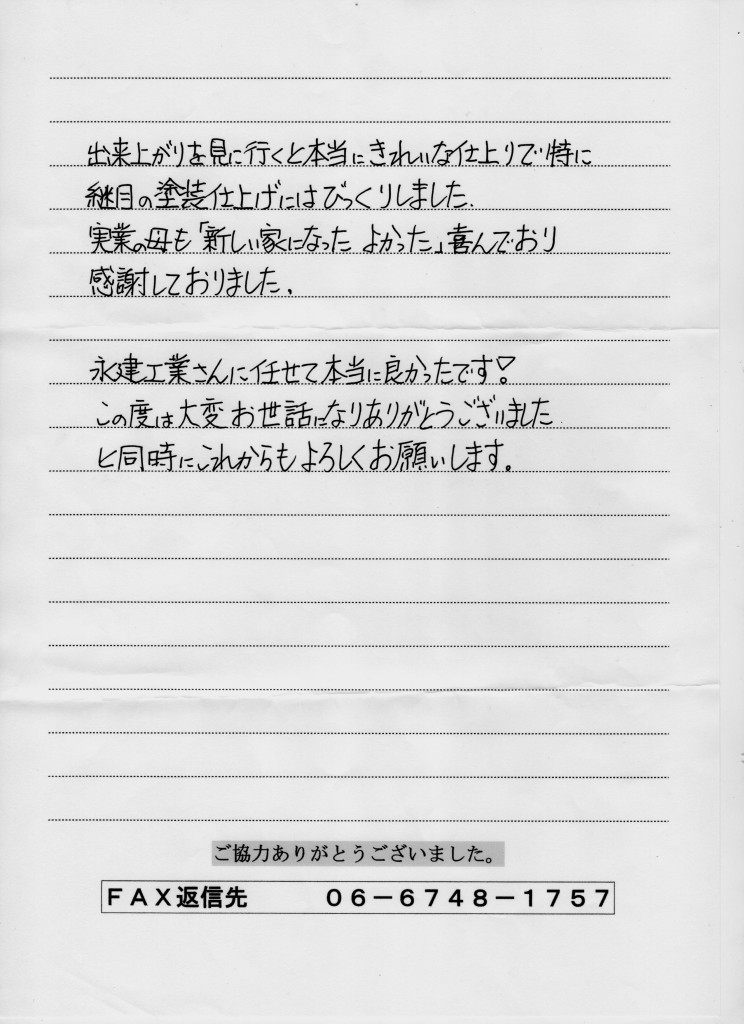 出来上がりを見に行くと本当にきれいな仕上りで特に
継目の塗装仕上げにはびっくりしました.
実業の母も「新しい家になった よかった」喜んでおり
感謝しておりました.
永建工業さんに任せて本当に良かったです!
この度は大変お世話になりありがとうございました
と同時にこれからもよろしくお願いします。
ご協力ありがとうございました。
ＦＡＸ返信先 ０６－６７４８－１７５７